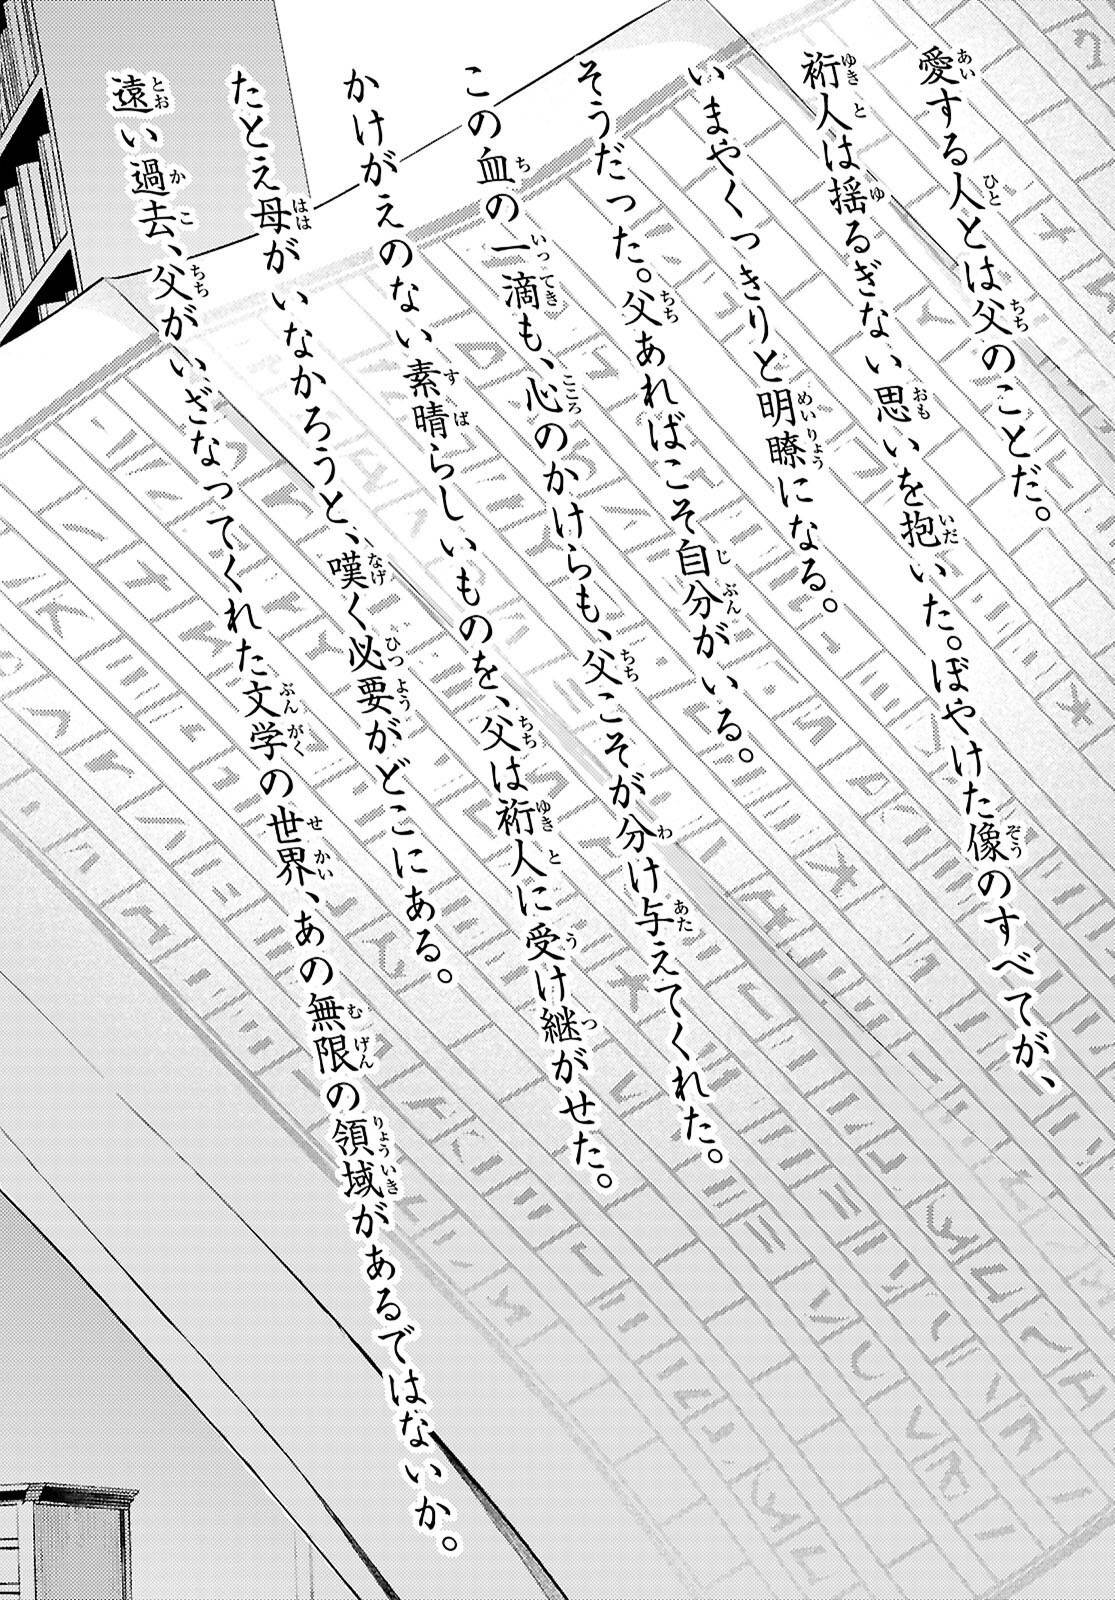 愛する人とは父のことだ。
裄人は揺るぎない思いを抱いた。ぼやけた像のすべてが、
いまやくっきりと明瞭になる。
そうだった。父あればこそ自分がいる。
この血の一滴も、心のかけらも、父こそが分け与えてくれた。
かけがえのない素晴らしいものを、父は裄人に受け継がせた。
たとえ母がいなかろうと、嘆く必要がどこにある。
遠い過去、父がいざなってくれた文学の世界、あの無限の領域があるではないか。